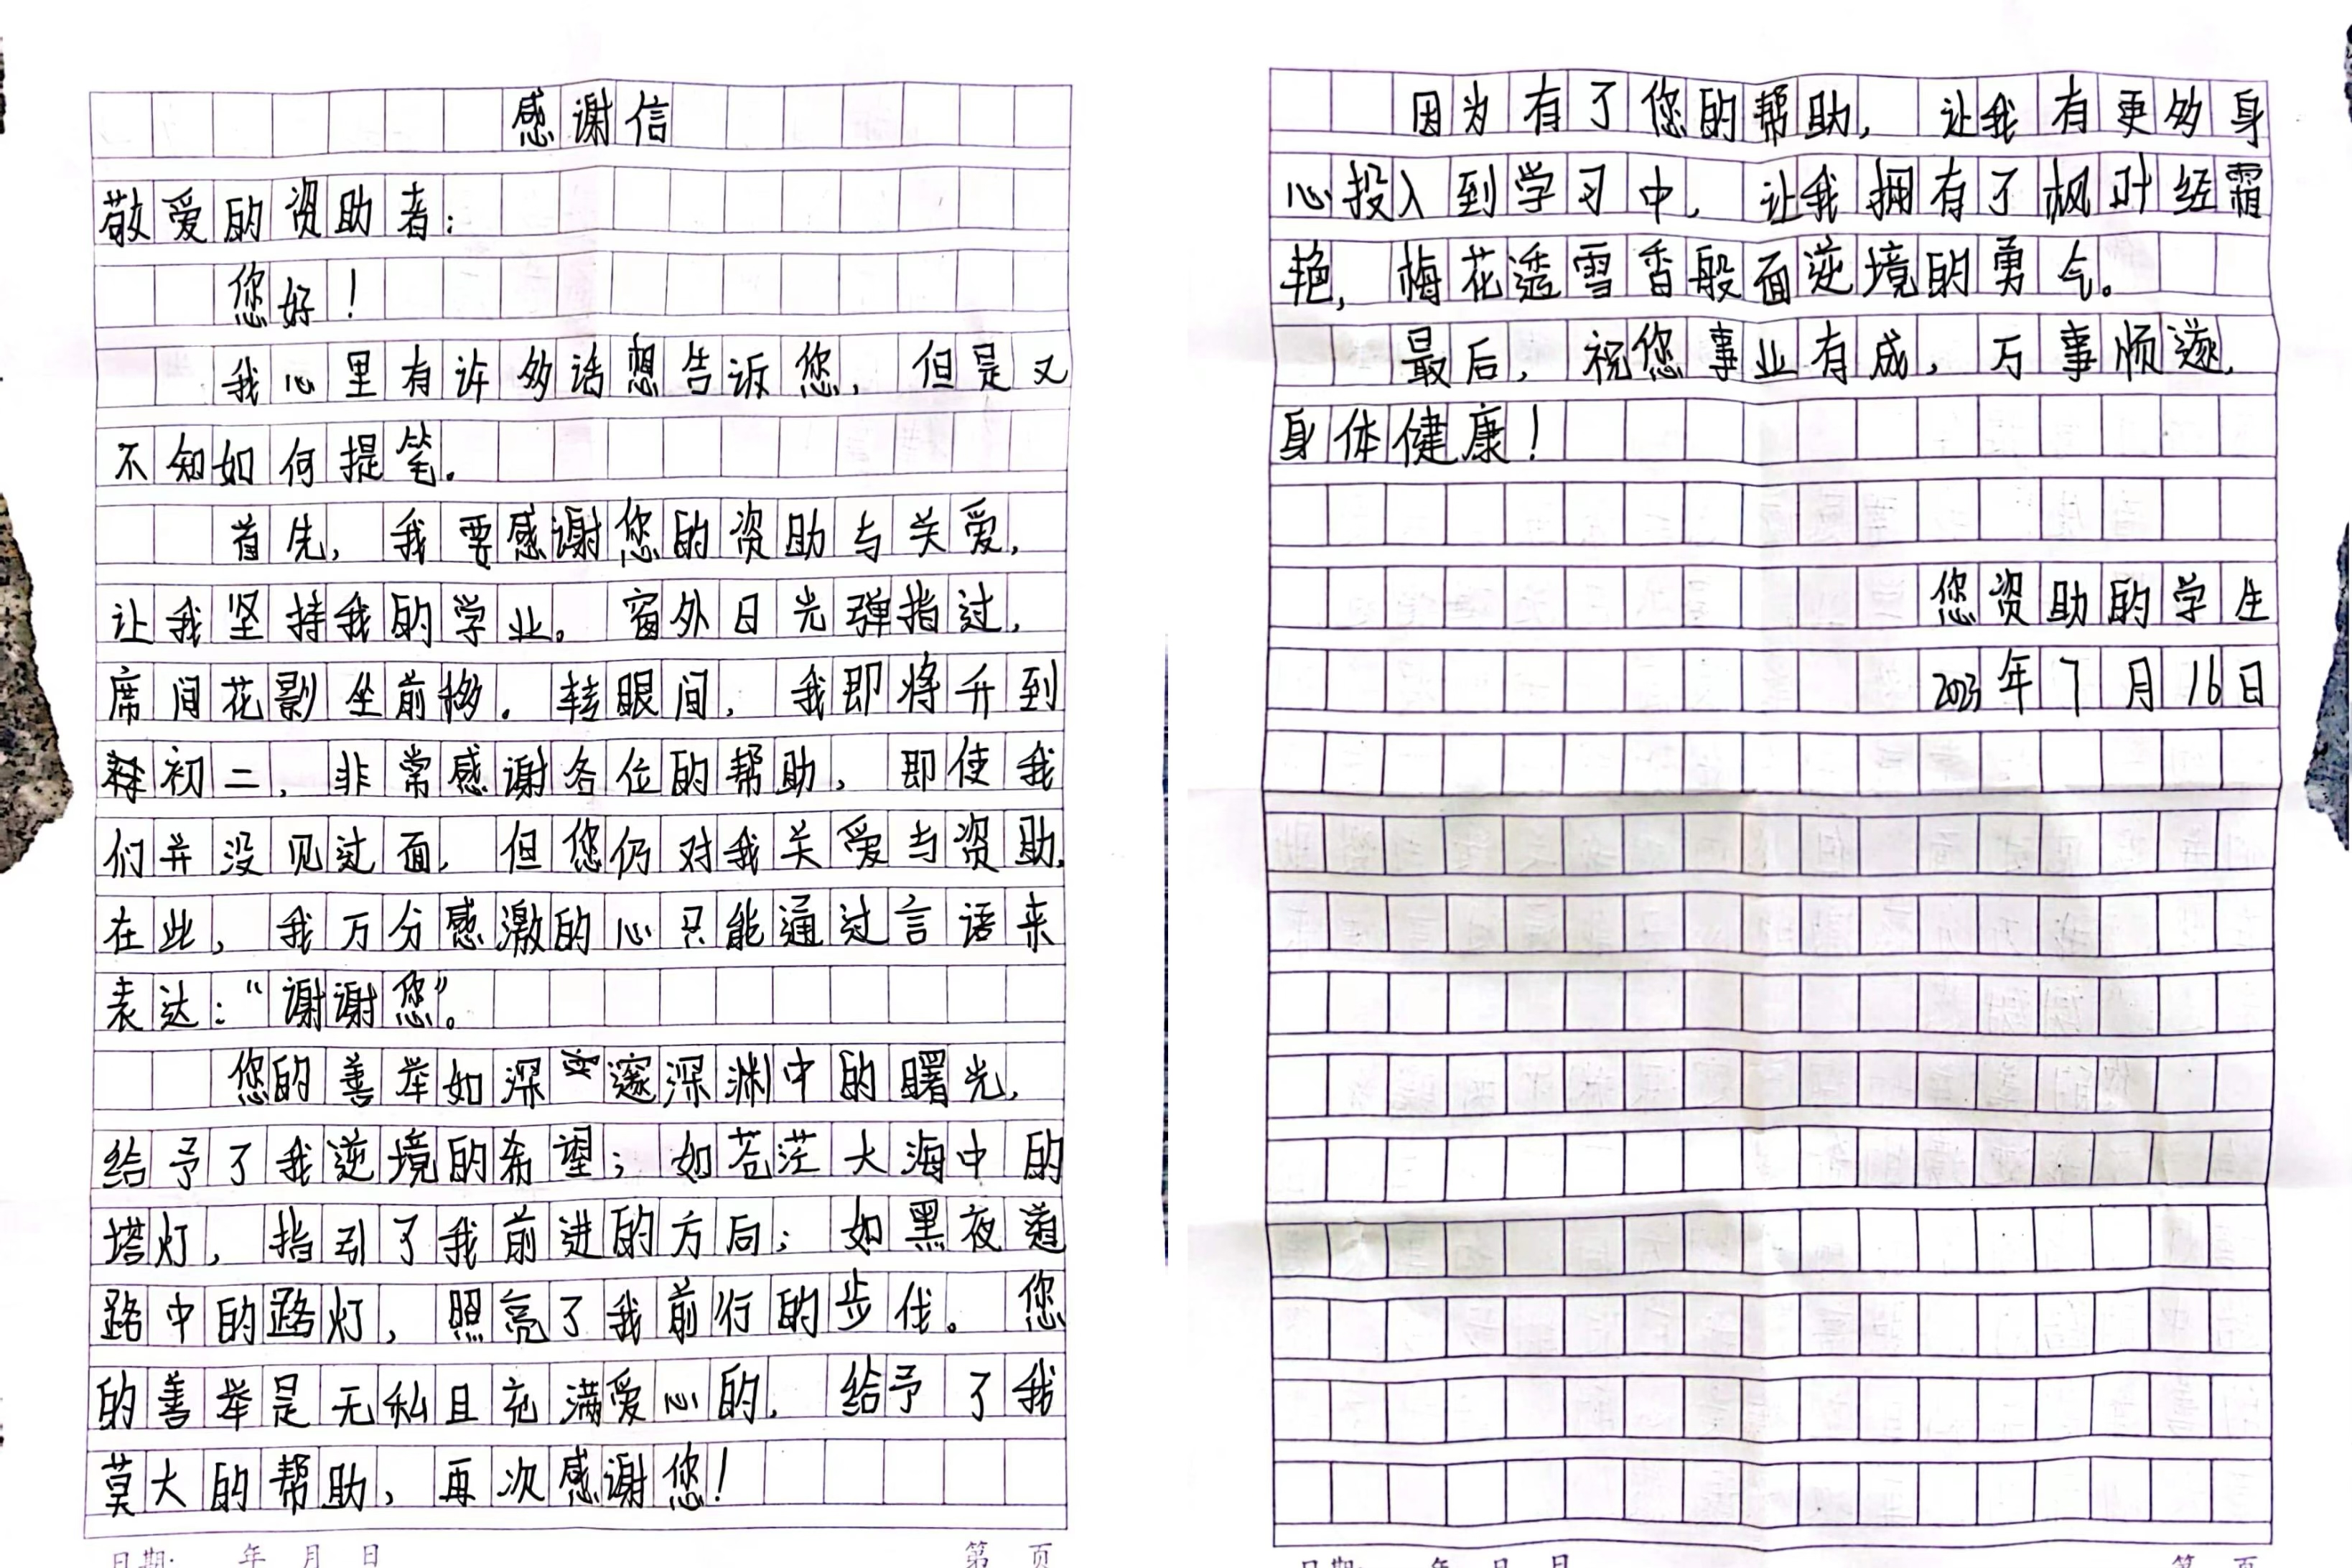 感谢信
敬爱的资助者：
您好！
我心里有许多话想告诉您，但是又
不知如何提笔。
首先，我要感谢您的资助与关爱，
让我坚持我的学业。窗外日光弹指过，
席间花影坐前移。转眼间，我即将升到
初二，非常感谢各位的帮助，即使我
们并没见过面，但您仍对我关爱与资助，
在此，我万分感激的心只能通过言语来
表达：“谢谢您”。
您的善举如深邃深渊中的曙光，
给予了我逆境的希望；如苍茫大海中的
塔灯，指引了我前进的方向；如黑夜道
路中的路灯，照亮了我前行的步伐。您
的善举是无私且充满爱心的，给予了我
莫大的帮助，再次感谢您！
日期： 年 月 日
第 页
因为有了您的帮助，让我有更多身
心投入到学习中，让我拥有了枫叶经霜
艳，梅花透雪香般面逆境的勇气。
最后，祝您事业有成，万事顺遂，
身体健康！
您资助的学生
2023年7月16日